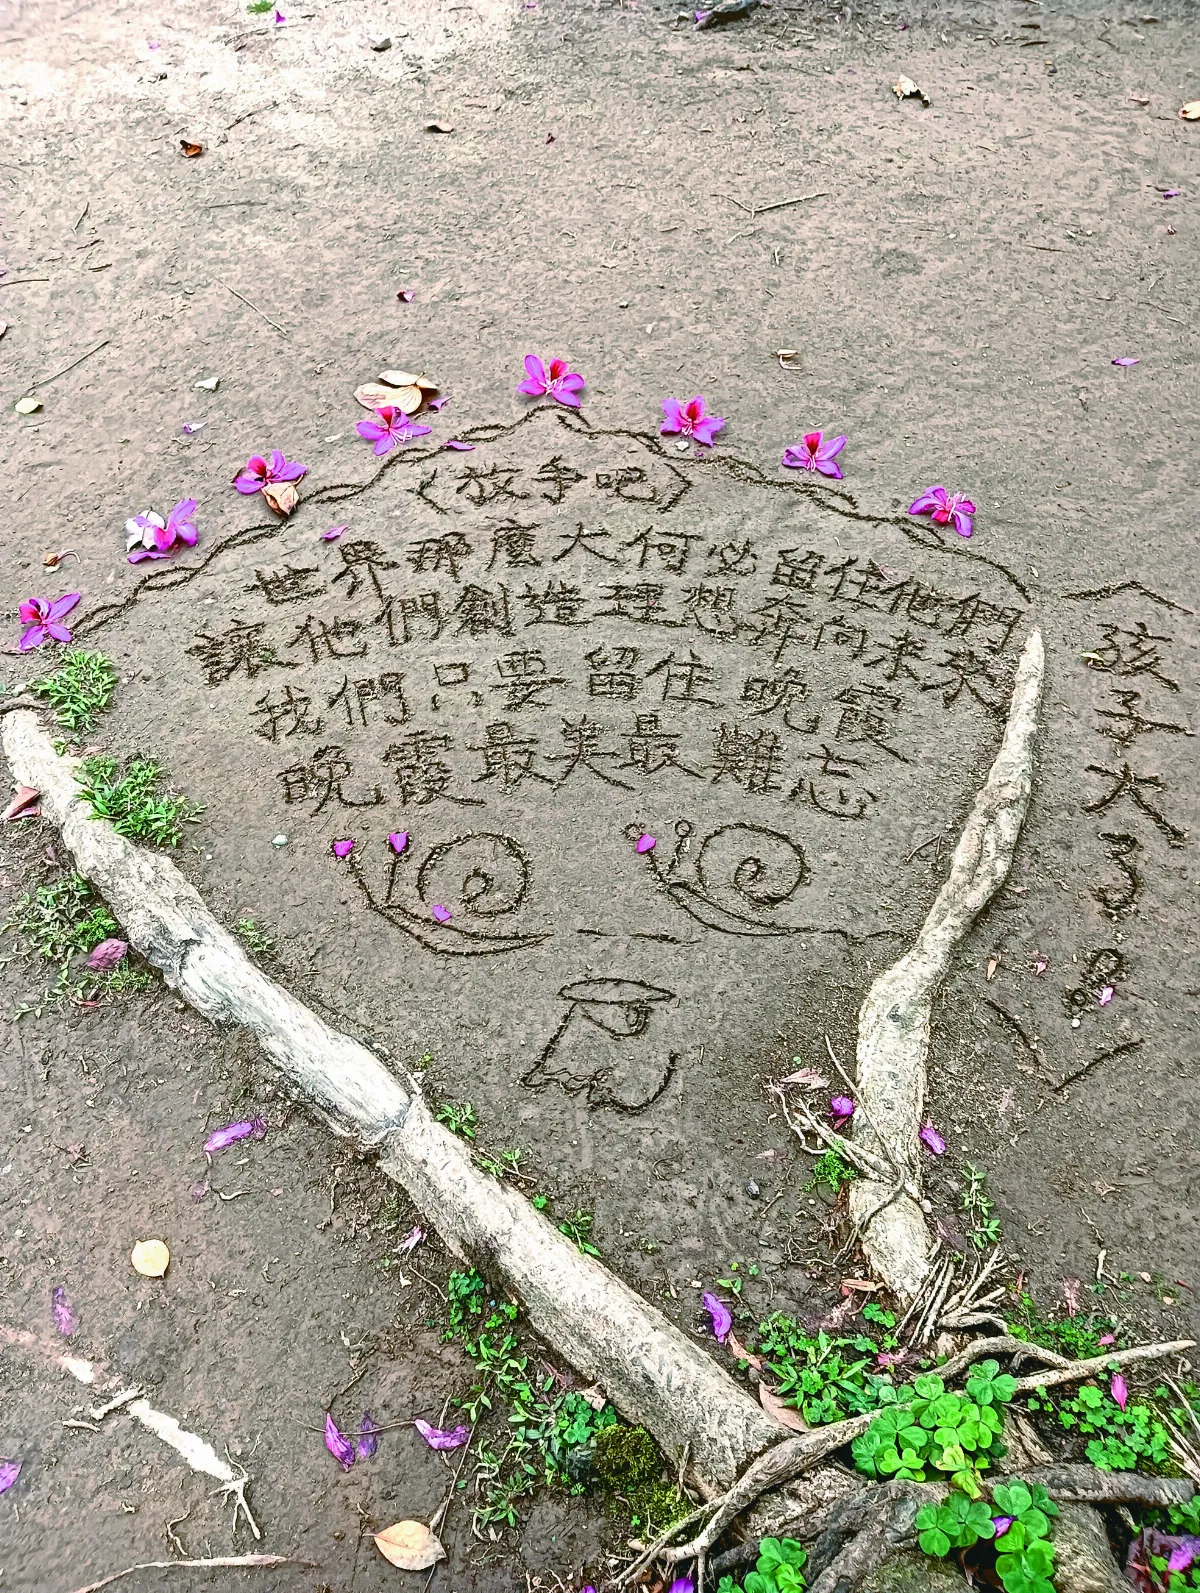 (放手吧)
世界那麼大何必留住他們
讓他們創造理想奔向未來
我們只要留住晚霞
晚霞最美最難忘
孩子大了。